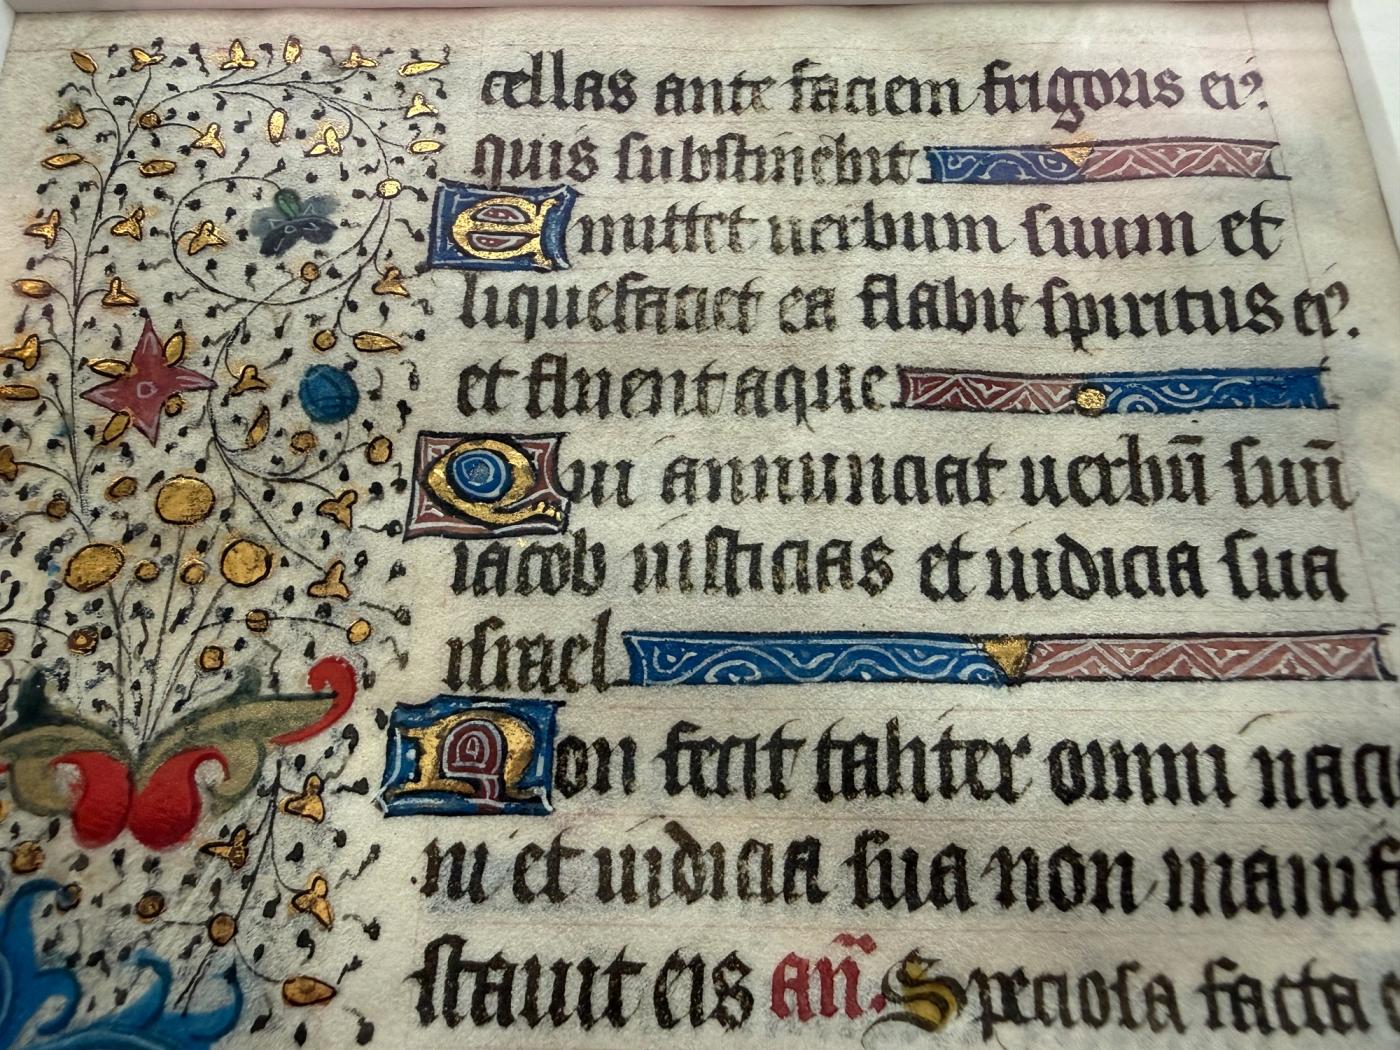 cellas ante faciem frigoris eiꝰ.
quis substinebit
Emittet uerbum suum et
liquefaciet ea flabit spiritus eiꝰ.
et fluent aque
Qui annunciat uerbū suū
iacob iusticias et iudicia sua
israel
Non fecit taliter omni nacio
ni et iudicia sua non manif
stauit eis añ. Speciosa facta